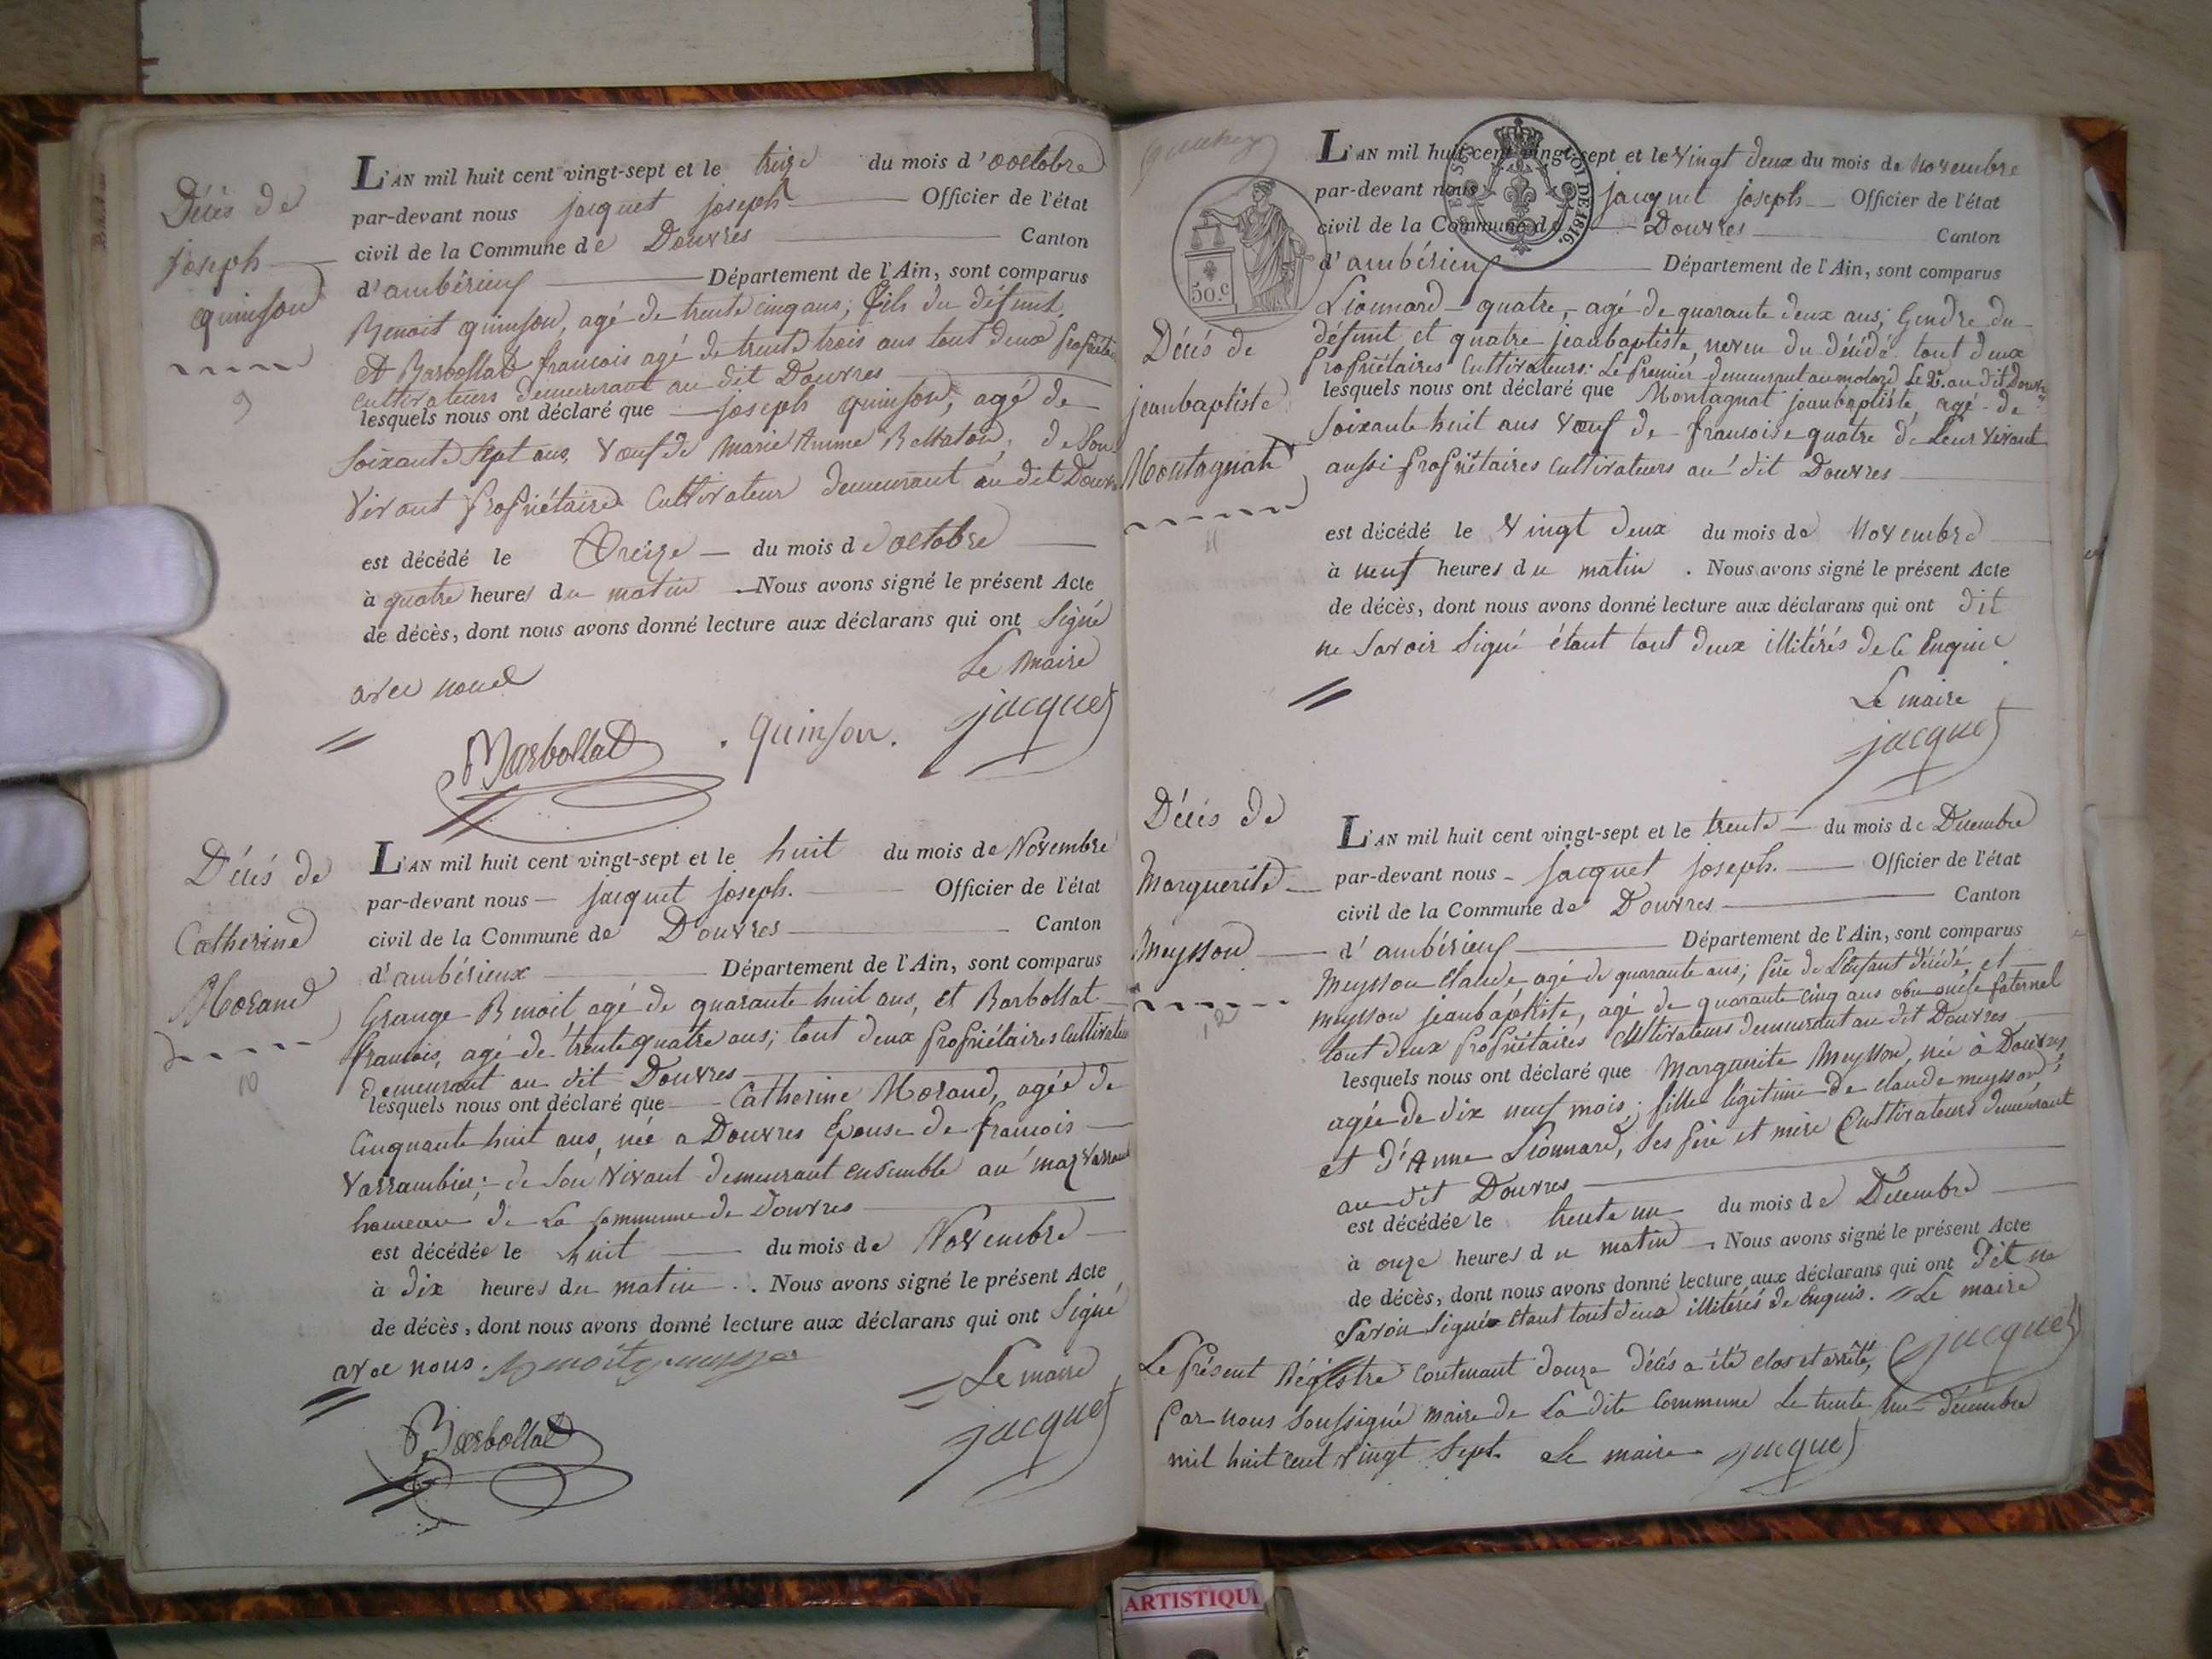 Décès de
joseph
quinson
9
L'AN mil huit cent vingt-sept et le treize du mois d'octobre
par-devant nous jacquet joseph Officier de l'état
civil de la Commune de Douvres Canton
d'ambérieux Département de l'Ain, sont comparus
Benoit quinson, agé de trente cinq ans, fils du défunt,
et Barbollat francois agé de trente trois ans tout deux proprietaires
cultivateurs demeurant au dit Douvres
lesquels nous ont déclaré que joseph quinson, agé de
soixante sept ans, vœuf de marie Anne, de son
vivant propriétaire cultivateur demeurant au dit Douvres
est décédé le treize du mois d'octobre
à quatre heures du matin . Nous avons signé le présent Acte
de décès, dont nous avons donné lecture aux déclarans qui ont signé
avec nous
Le maire
Barbollat . quinson . jacquet
Décès de
Catherine
Morand
10
L'AN mil huit cent vingt-sept et le huit du mois de Novembre
par-devant nous jacquet joseph. Officier de l'état
civil de la Commune de Douvres Canton
d'ambérieux Département de l'Ain, sont comparus
Grange Benoit agé de quarante huit ans, et Barbollat
francois, agé de trente quatre ans; tout deux propriétaires cultivateurs
demeurant au dit Douvres
lesquels nous ont déclaré que Catherine Morand, agée de
cinquante huit ans, née a Douvres Epouse de francois
varrambier; de son vivant demeurant ensemble au
hameau de la commune de Douvres
est décédée le huit du mois de Novembre
à dix heures du matin . Nous avons signé le présent Acte
de décès, dont nous avons donné lecture aux déclarans qui ont signé
avec nous.
Le maire
Barbollat jacquet
50.c
LOI DE 1816.
Décès de
jeanbaptiste
Montagnat
11
L'AN mil huit cent vingt-sept et le vingt deux du mois de novembre
par-devant nous jacquet joseph Officier de l'état
civil de la Commune de Douvres Canton
d'ambérieux Département de l'Ain, sont comparus
Lionnard quatre, agé de quarante deux ans; Gendre du
défunt et quatre jeanbaptiste, neveu du décédé tout deux
propriétaires cultivateurs: Le premier demeurant au molard Le 2e. au dit Douvres
lesquels nous ont déclaré que Montagnat jeanbaptiste, agé de
soixante huit ans vœuf de francoise quatre de Leur vivant
aussi propriétaires cultivateurs au dit Douvres
est décédé le vingt deux du mois de Novembre
à neuf heures du matin . Nous avons signé le présent Acte
de décès, dont nous avons donné lecture aux déclarans qui ont dit
ne savoir signé étant tout deux illitérés de ce Enquis
Le maire
jacquet
Décès de
Marguerite
Meysson
12
L'AN mil huit cent vingt-sept et le trente du mois de Decembre
par-devant nous jacquet joseph. Officier de l'état
civil de la Commune de Douvres Canton
d'ambérieux Département de l'Ain, sont comparus
Meysson claude agé de quarante ans; père de L'enfant décédé, et
meysson jeanbaptiste, agé de quarante cinq ans oncle paternel
tout deux propriétaires cultivateurs demeurant au dit Douvres
lesquels nous ont déclaré que Marguerite Meysson, née à Douvres
agée de dix neuf mois; fille légitime de claude meysson,
et d'Anne Lionnard, ses père et mère cultivateurs demeurant
au dit Douvres
est décédée le trente un du mois de Décembre
à onze heures du matin . Nous avons signé le présent Acte
de décès, dont nous avons donné lecture aux déclarans qui ont dit ne
savoir signé étant tout deux illitérés de Enquis. Le maire
jacquet
Le présent Régistre contenant douze décès a été clos et arrêté,
par nous soussigné maire de La dite commune le trente un décembre
mil huit cent vingt sept. Le maire jacquet
ARTISTIQUE